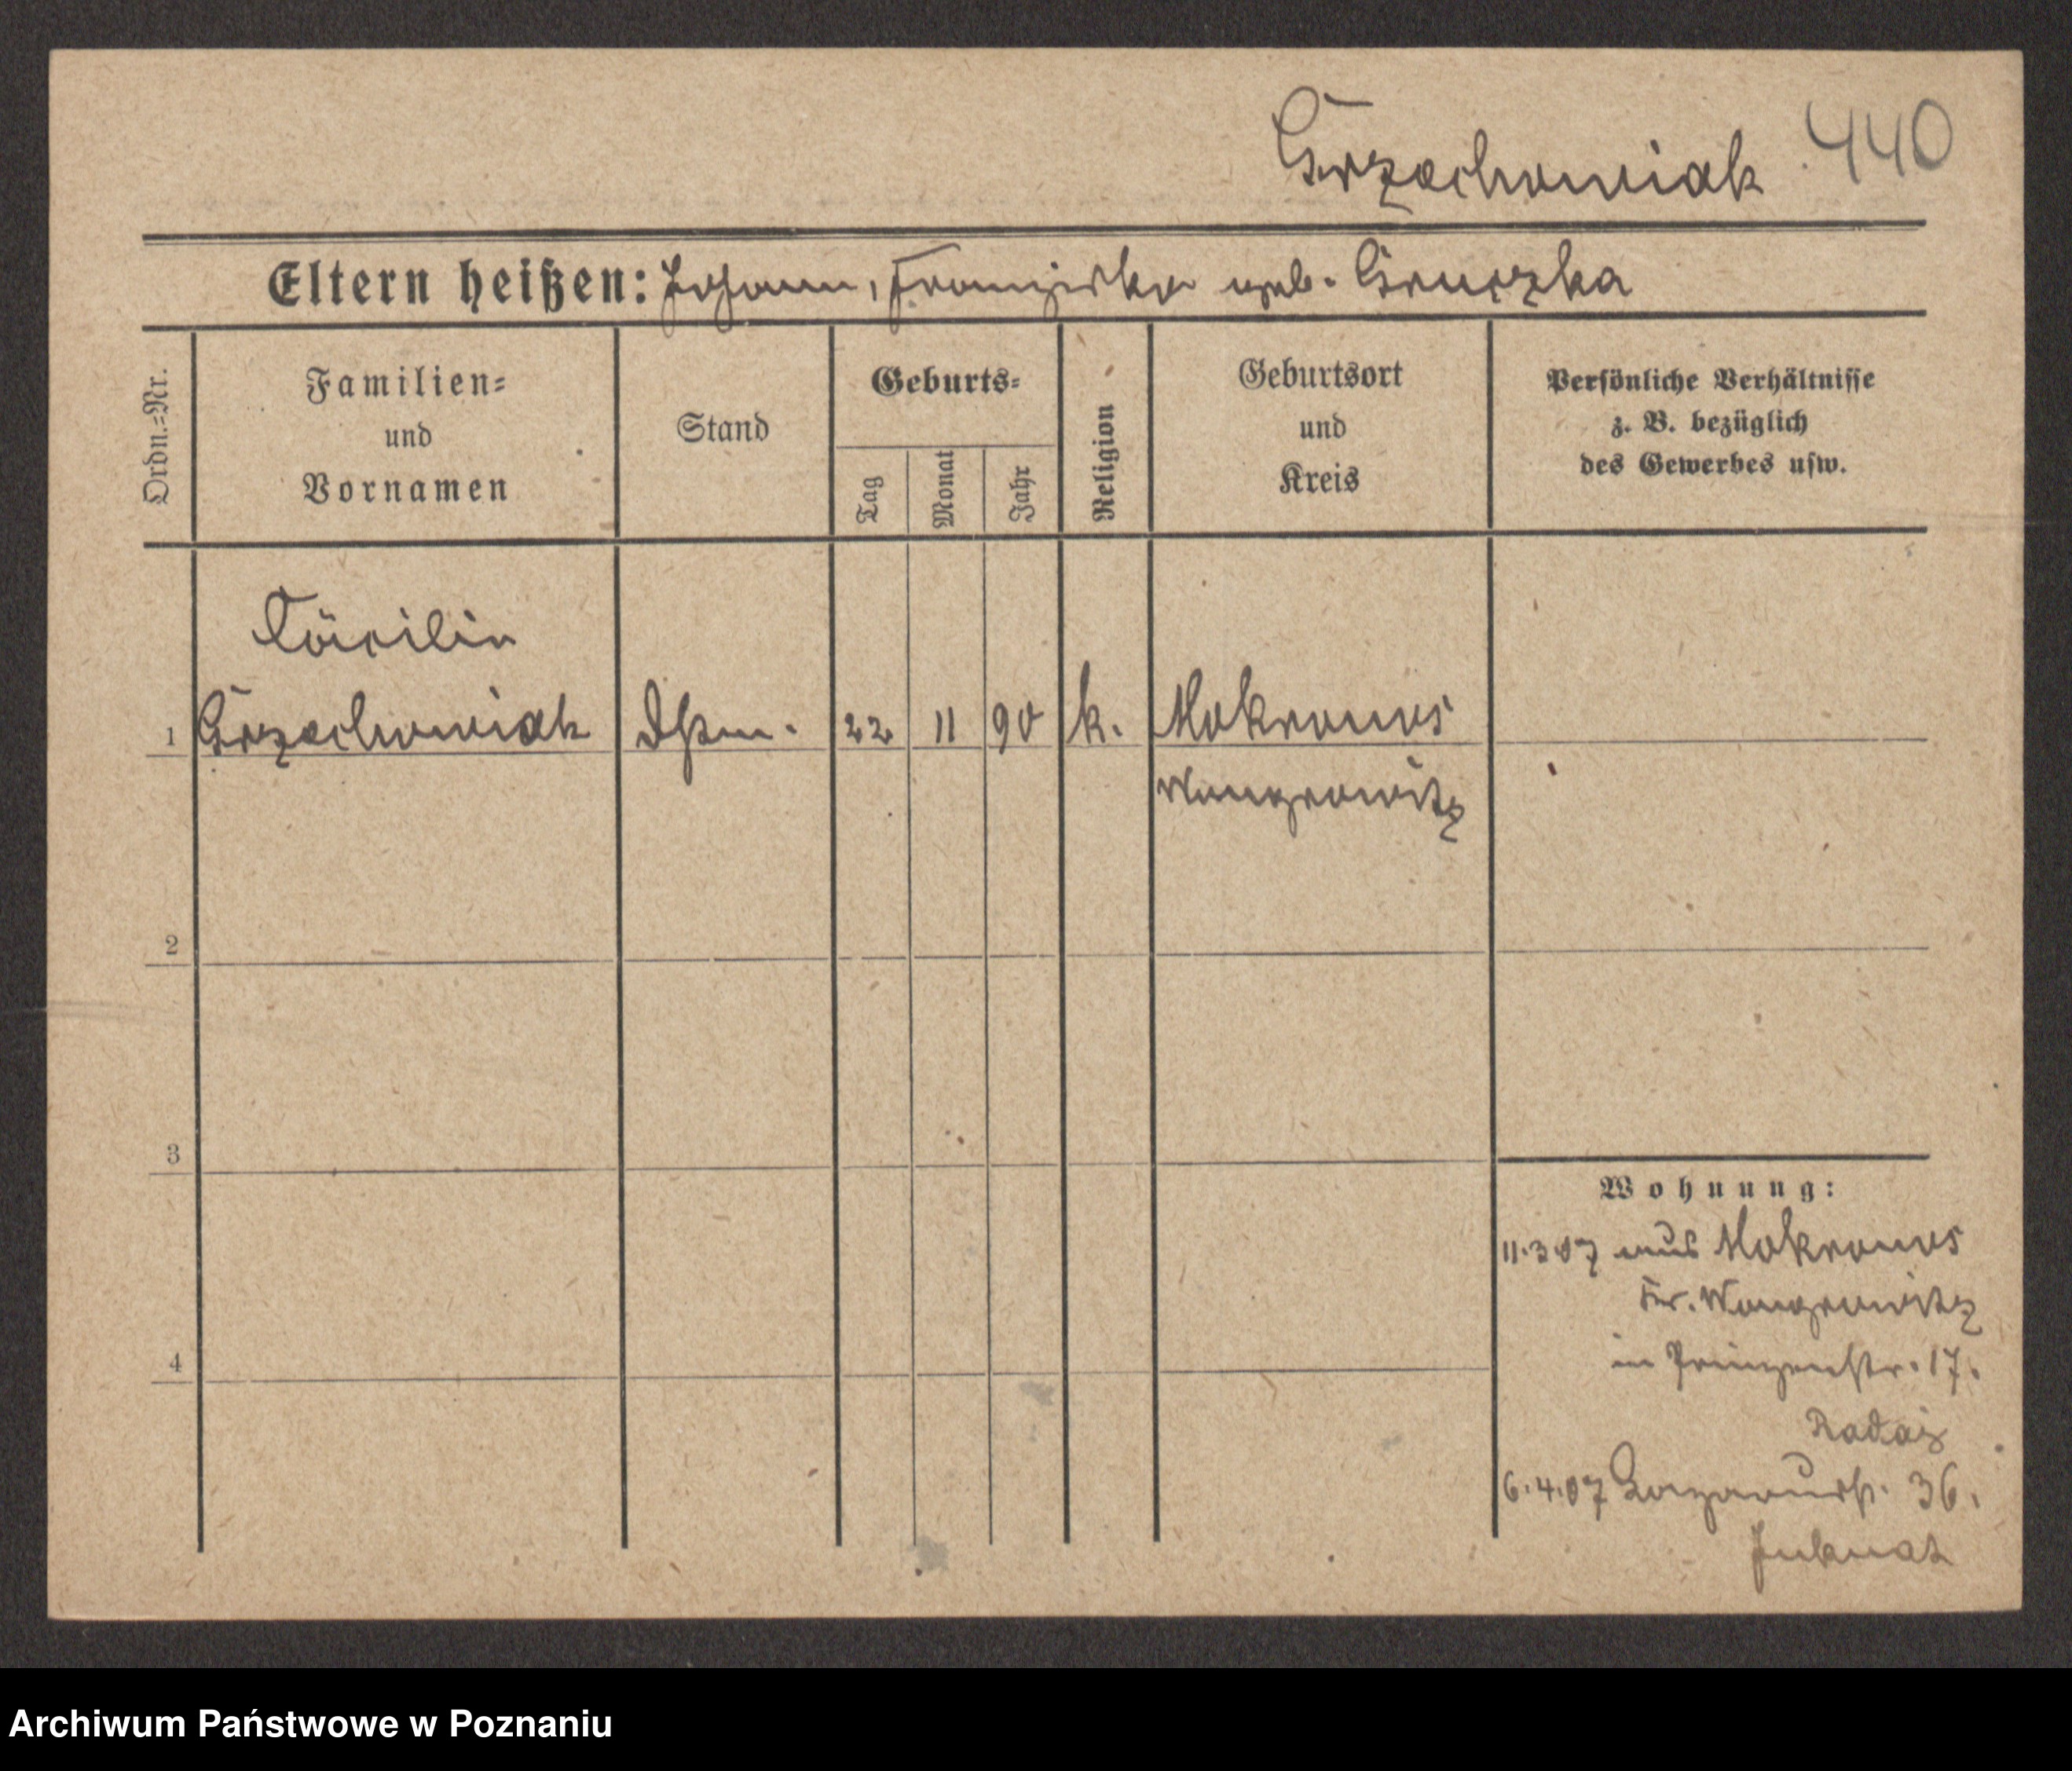 Grzechowiak 440
Eltern heißen: Johann, Franziska geb. Gruszka
Ordn.=Nr.
Familien=
und
Vornamen
Stand
Geburts=
Tag
Monat
Jahr
Religion
Geburtsort
und
Kreis
Persönliche Verhältnisse
z. B. bezüglich
des Gewerbes usw.
Cäcilie
1 Grzechowiak Dstm. 22 11 90 k. Mokronos
Wongrowitz
2
3
4
Wohnung:
11.3.07 aus Mokronos
Kr. Wongrowitz
in Prinzenstr. 17.
6.4.07 Lazarusstr. 36.
Archiwum Państwowe w Poznaniu